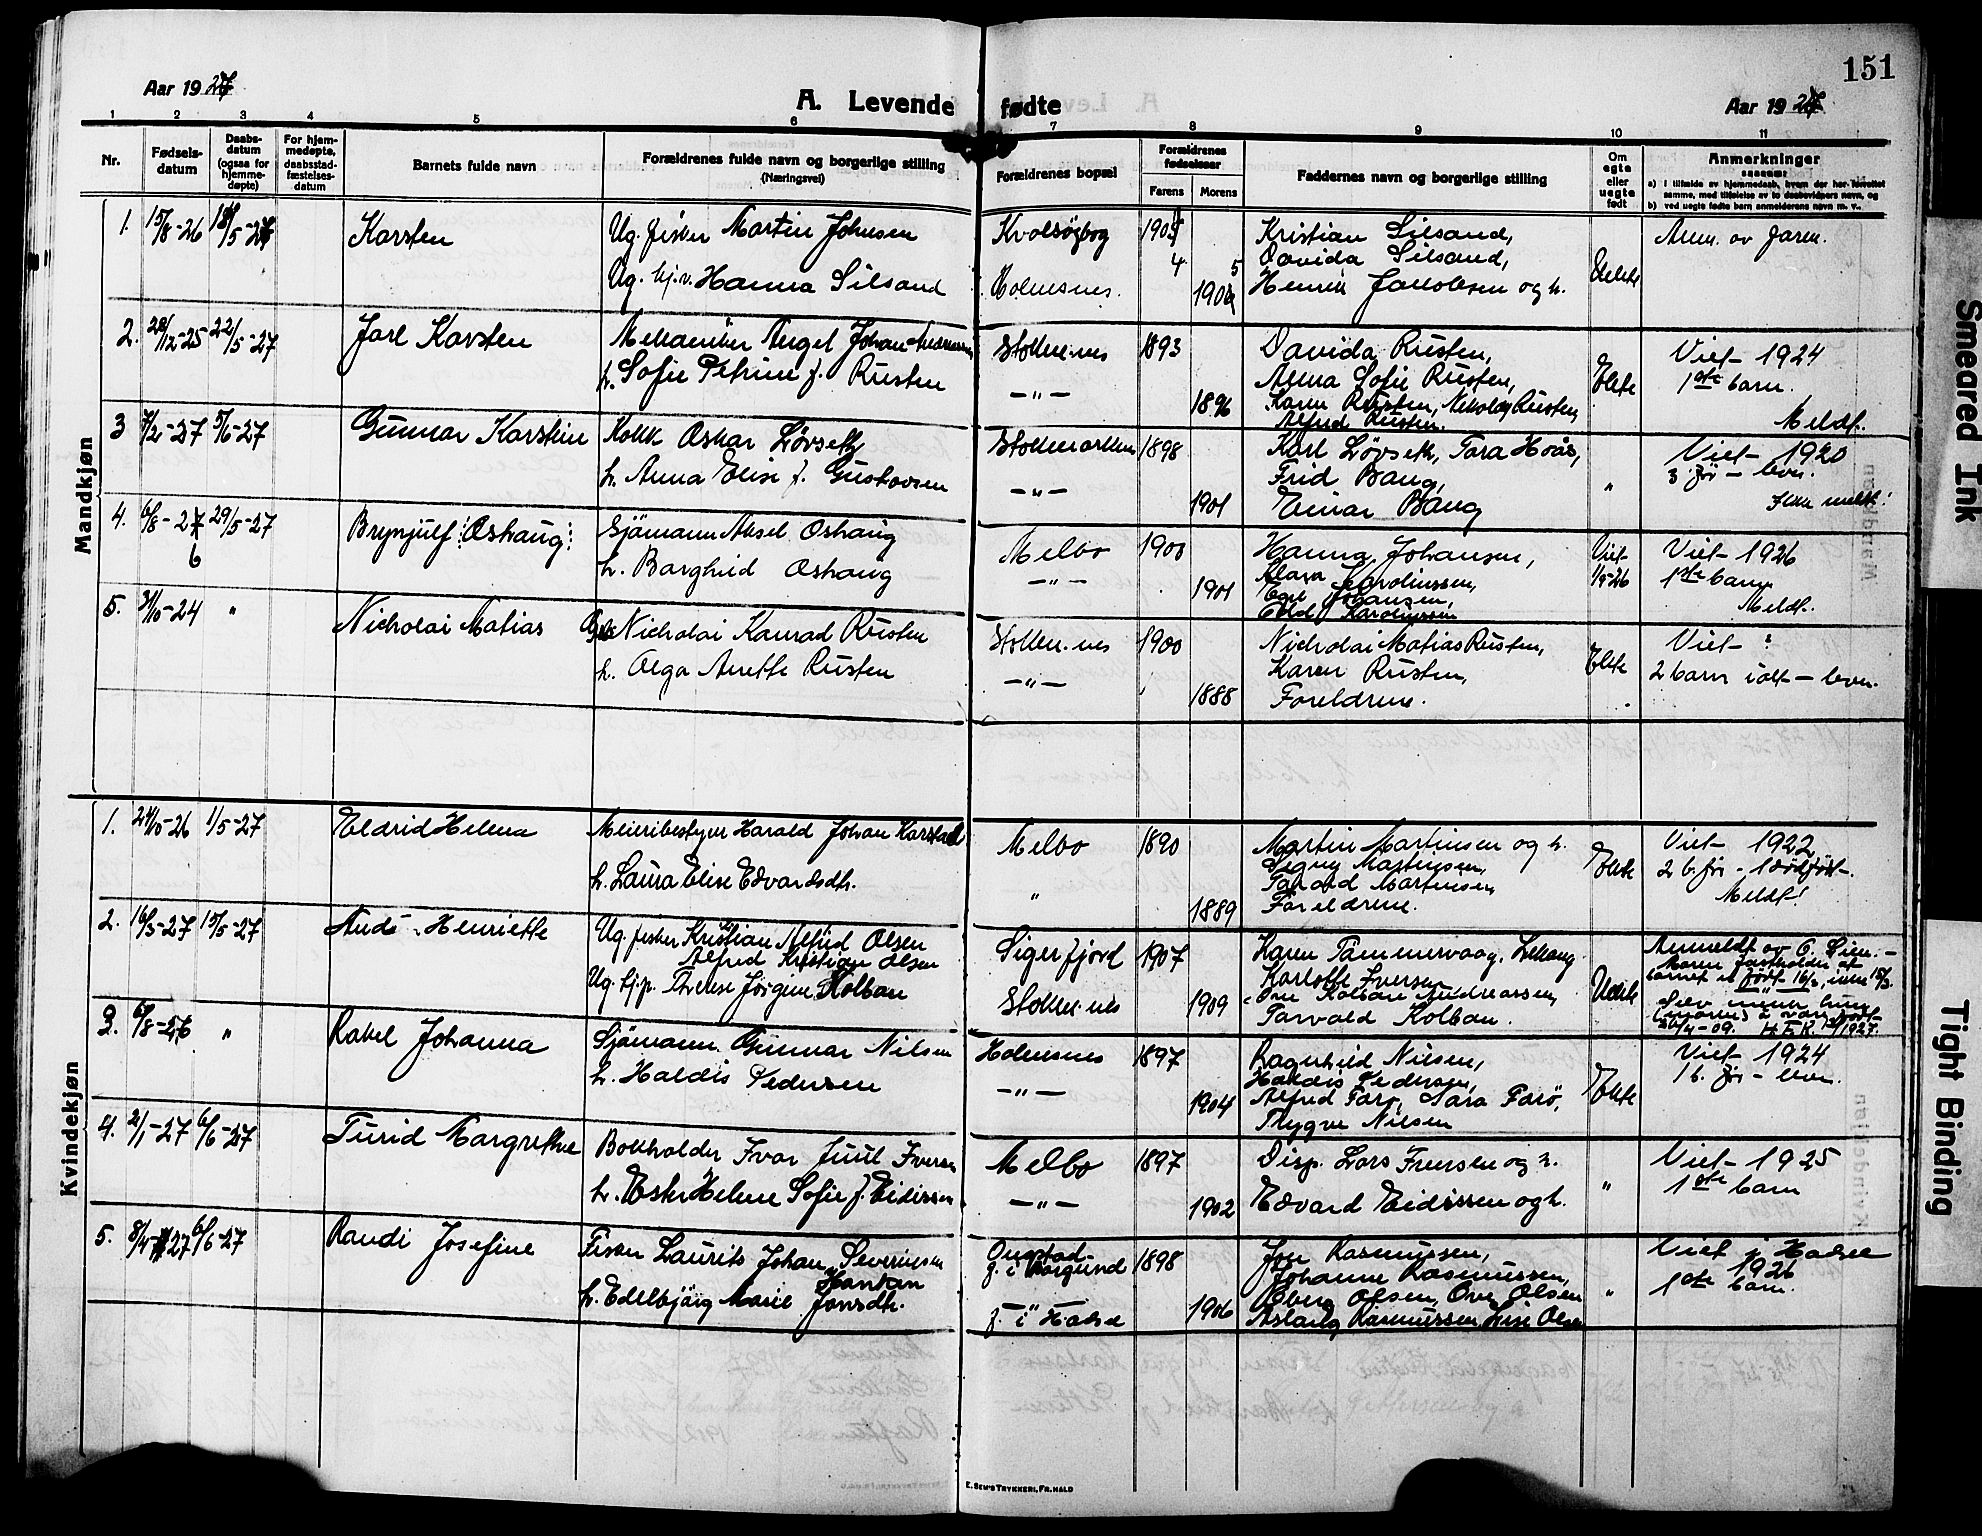 151
Aar 1927
A. Levende fødte
Aar 1927
1 2 3 4 5 6 7 8 9 10 11
Nr.
Fødsels-
datum
Daabs-
datum
(ogsaa for
hjemme-
døpte)
For hjem-
medøpte,
daabsstad-
fæstelses-
datum
Barnets fulde navn
Forældrenes fulde navn og borgerlige stilling
(Næringsvei)
Forældrenes bopæl
Forældrenes
fødselsaar
Farens Morens
Faddernes navn og borgerlige stilling
Om
egte
eller
uegte
født
Anmerkninger
saasom:
a) i tilfælde av hjemmedaab, hvem der har forrettet
samme, med tilføielse av to daabsvidners navn, og
b) ved uegte fødte barn anmelderens navn m. v.
Mandkjøn
1. 15/8-26
Karsten
Ug. fisker Martin Johnsen
Ug. hj.v. Hanna Silsand
Holmesnes.
4
5
Kristian Silsand,
Davida Silsand,
Henrik Jakobsen og h.
Uekte
Anm. av faren.
2. 28/12-25 22/5-27
Jarl Karsten
Mekaniker Angel Johan Andreassen
h. Sofie Petrine f. Rusten
Stokm.nes
— „ —
1893
1896
Davida Rusten,
Anna Sofie Rusten,
Karen Rusten, Nikolay Rusten,
Alfred Rusten.
Ekte
Viet 1924
1ste barn.
Meldt.
3 7/2-27 5/6-27
Gunnar Karstein
Kokk Oskar Løvseth
h. Anna Elise f. Gustavsen
— „ —
1898
1901
Karl Løvseth, Tara Hoås,
Frid Bang,
Einar Bang
„
Viet 1920
3 før – lever.
Ikke meldt!
4. 6/8-27 29/5-27
6
Brynjulf Oshaug
Sjømann Aksel Oshaug
h. Borghild Oshaug
Melbo
— „ —
1900
1901
Hanna Johansen,
Klara Karolinssen,
Egil Johansen,
Edd Karolinssen
Viet
1/9-26
Viet 1926
1ste barn
Meldt.
5. 31/10-24 „
Nicholai Matias
Nicholai Konrad Rusten
h. Olga Anette Rusten
Stokm.nes
— „ —
1900
1888
Nicholai Matias Rusten,
Karen Rusten,
Foreldrene.
Ekte
Viet ?
2 barn i alt – lever.
Kvindekjøn
1. 24/10-26 1/5-27
Eldrid Helena
Meieribestyrer Harald Johan Karstad
h. Laura Elise Edvardsdtr.
Melbo
„
1890
1889
Martin Martinsen og h.
Signy Martinsen,
Harald Martinsen
Foreldrene.
Ekte
Viet 1922
2 b. før – 1 dødfødt.
Meldt!
2. 16/3-27 15/5-27
Henriette
Ug. fisker Kristian Alfred Olsen
Alfred Kristian Olsen
Ug. tj.p. Therese Jørgine Kolban
Sigerfjord
Stokm.nes
1907
1909
Karen Tammervaag,
Karlotte Iversen
Ove Kolban Andreassen,
Torvald Kolban.
Uekte
Anmeldt av
Moren fastholder at
barnet er født 16/3, ikke 15/3.
3. 6/8-26 „
Rakel Johanna
Sjømann Gunnar Nilsen
h. Haldis Pedersen
Holmesnes
— „ —
1897
1904
Ragnhild Nilsen,
Haldis Pedersen,
Alfred Farø, Sara Farø,
Trygve Nilsen
Ekte
Viet 1924
1 b. før – lever.
4. 2/1-27 6/6-27
Turid Margrethe
Bokholder Ivar Juul Iversen
h. Ester Helene Sofie f. Eidissen
Melbo
— „ —
1897
1902
Disp. Lars Iversen og h.
Edvard Eidissen og h.
„
Viet 1925
1ste barn
5. 8/4-27 6/6-27
Randi Josefine
Fisker Laurits Johan Severinsen
h. Edelbjørg Marie Jonsdtr.
f. i Borgund
f. i Hadsel
1898
1906
Jon Rasmussen,
Johanne Rasmussen,
Olsen, Ove Olsen
Aslaug Rasmussen,
„
Viet i Hadsel
1926
1ste barn.
E. SEM'S TRYKKERI, FR.HALD
Smeared Ink
Tight Binding